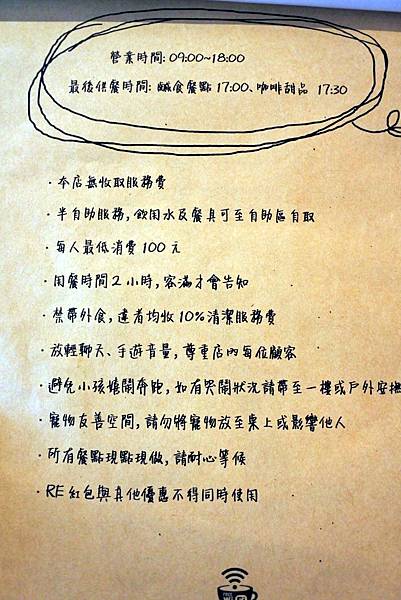 營業時間: 09:00~18:00
最後供餐時間: 鹹食餐點 17:00、咖啡甜品 17:30
·本店無收取服務費
·半自助服務, 飲用水及餐具可至自助區自取
·每人最低消費 100 元
·用餐時間 2 小時, 客滿才會告知
·禁帶外食, 違者均收 10% 清潔服務費
·放輕聊天、手遊音量, 尊重店內每位顧客
·避免小孩嬉鬧奔跑, 如有哭鬧狀況請帶至一樓或戶外安撫
·寵物友善空間, 請勿將寵物放至桌上或影響他人
·所有餐點現點現做, 請耐心等候
·RE 紅包與其他優惠不得同時使用
FREE